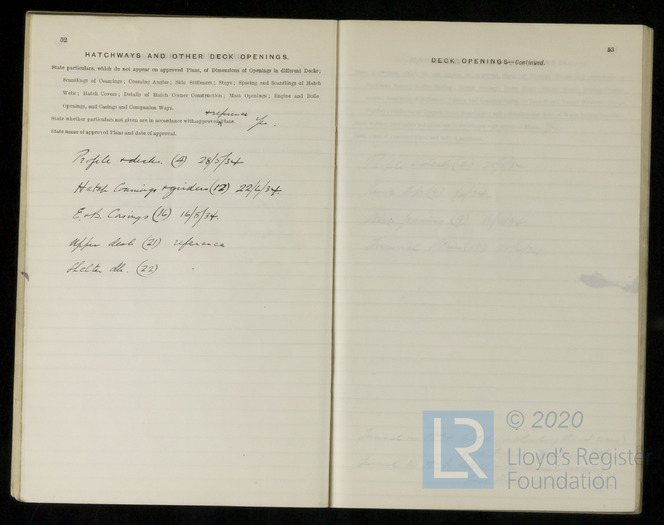 52
HATCHWAYS AND OTHER DECK OPENINGS.
State particulars, which do not appear on approved Plans, of Dimensions of Openings in different Decks;
Scantlings of Coamings; Coaming Angles; Side Stiffeners; Stays; Spacing and Scantlings of Hatch
Webs; Hatch Covers; Details of Hatch Corner Construction; Mast Openings; Engine and Boiler
Openings, and Casings and Companion Ways.
& reference
State whether particulars not given are in accordance with approved Plans. Yes.
State name of approved Plans and date of approval.
Profile & decks. (4) 28/3/34
Hatch Coamings & girders (12) 22/6/34.
E. & B. Casings (16) 16/8/34.
Upper deck (21) reference
Shelter dk. (22) "
53
DECK OPENINGS—Continued.
LR
© 2020
Lloyd's Register
Foundation